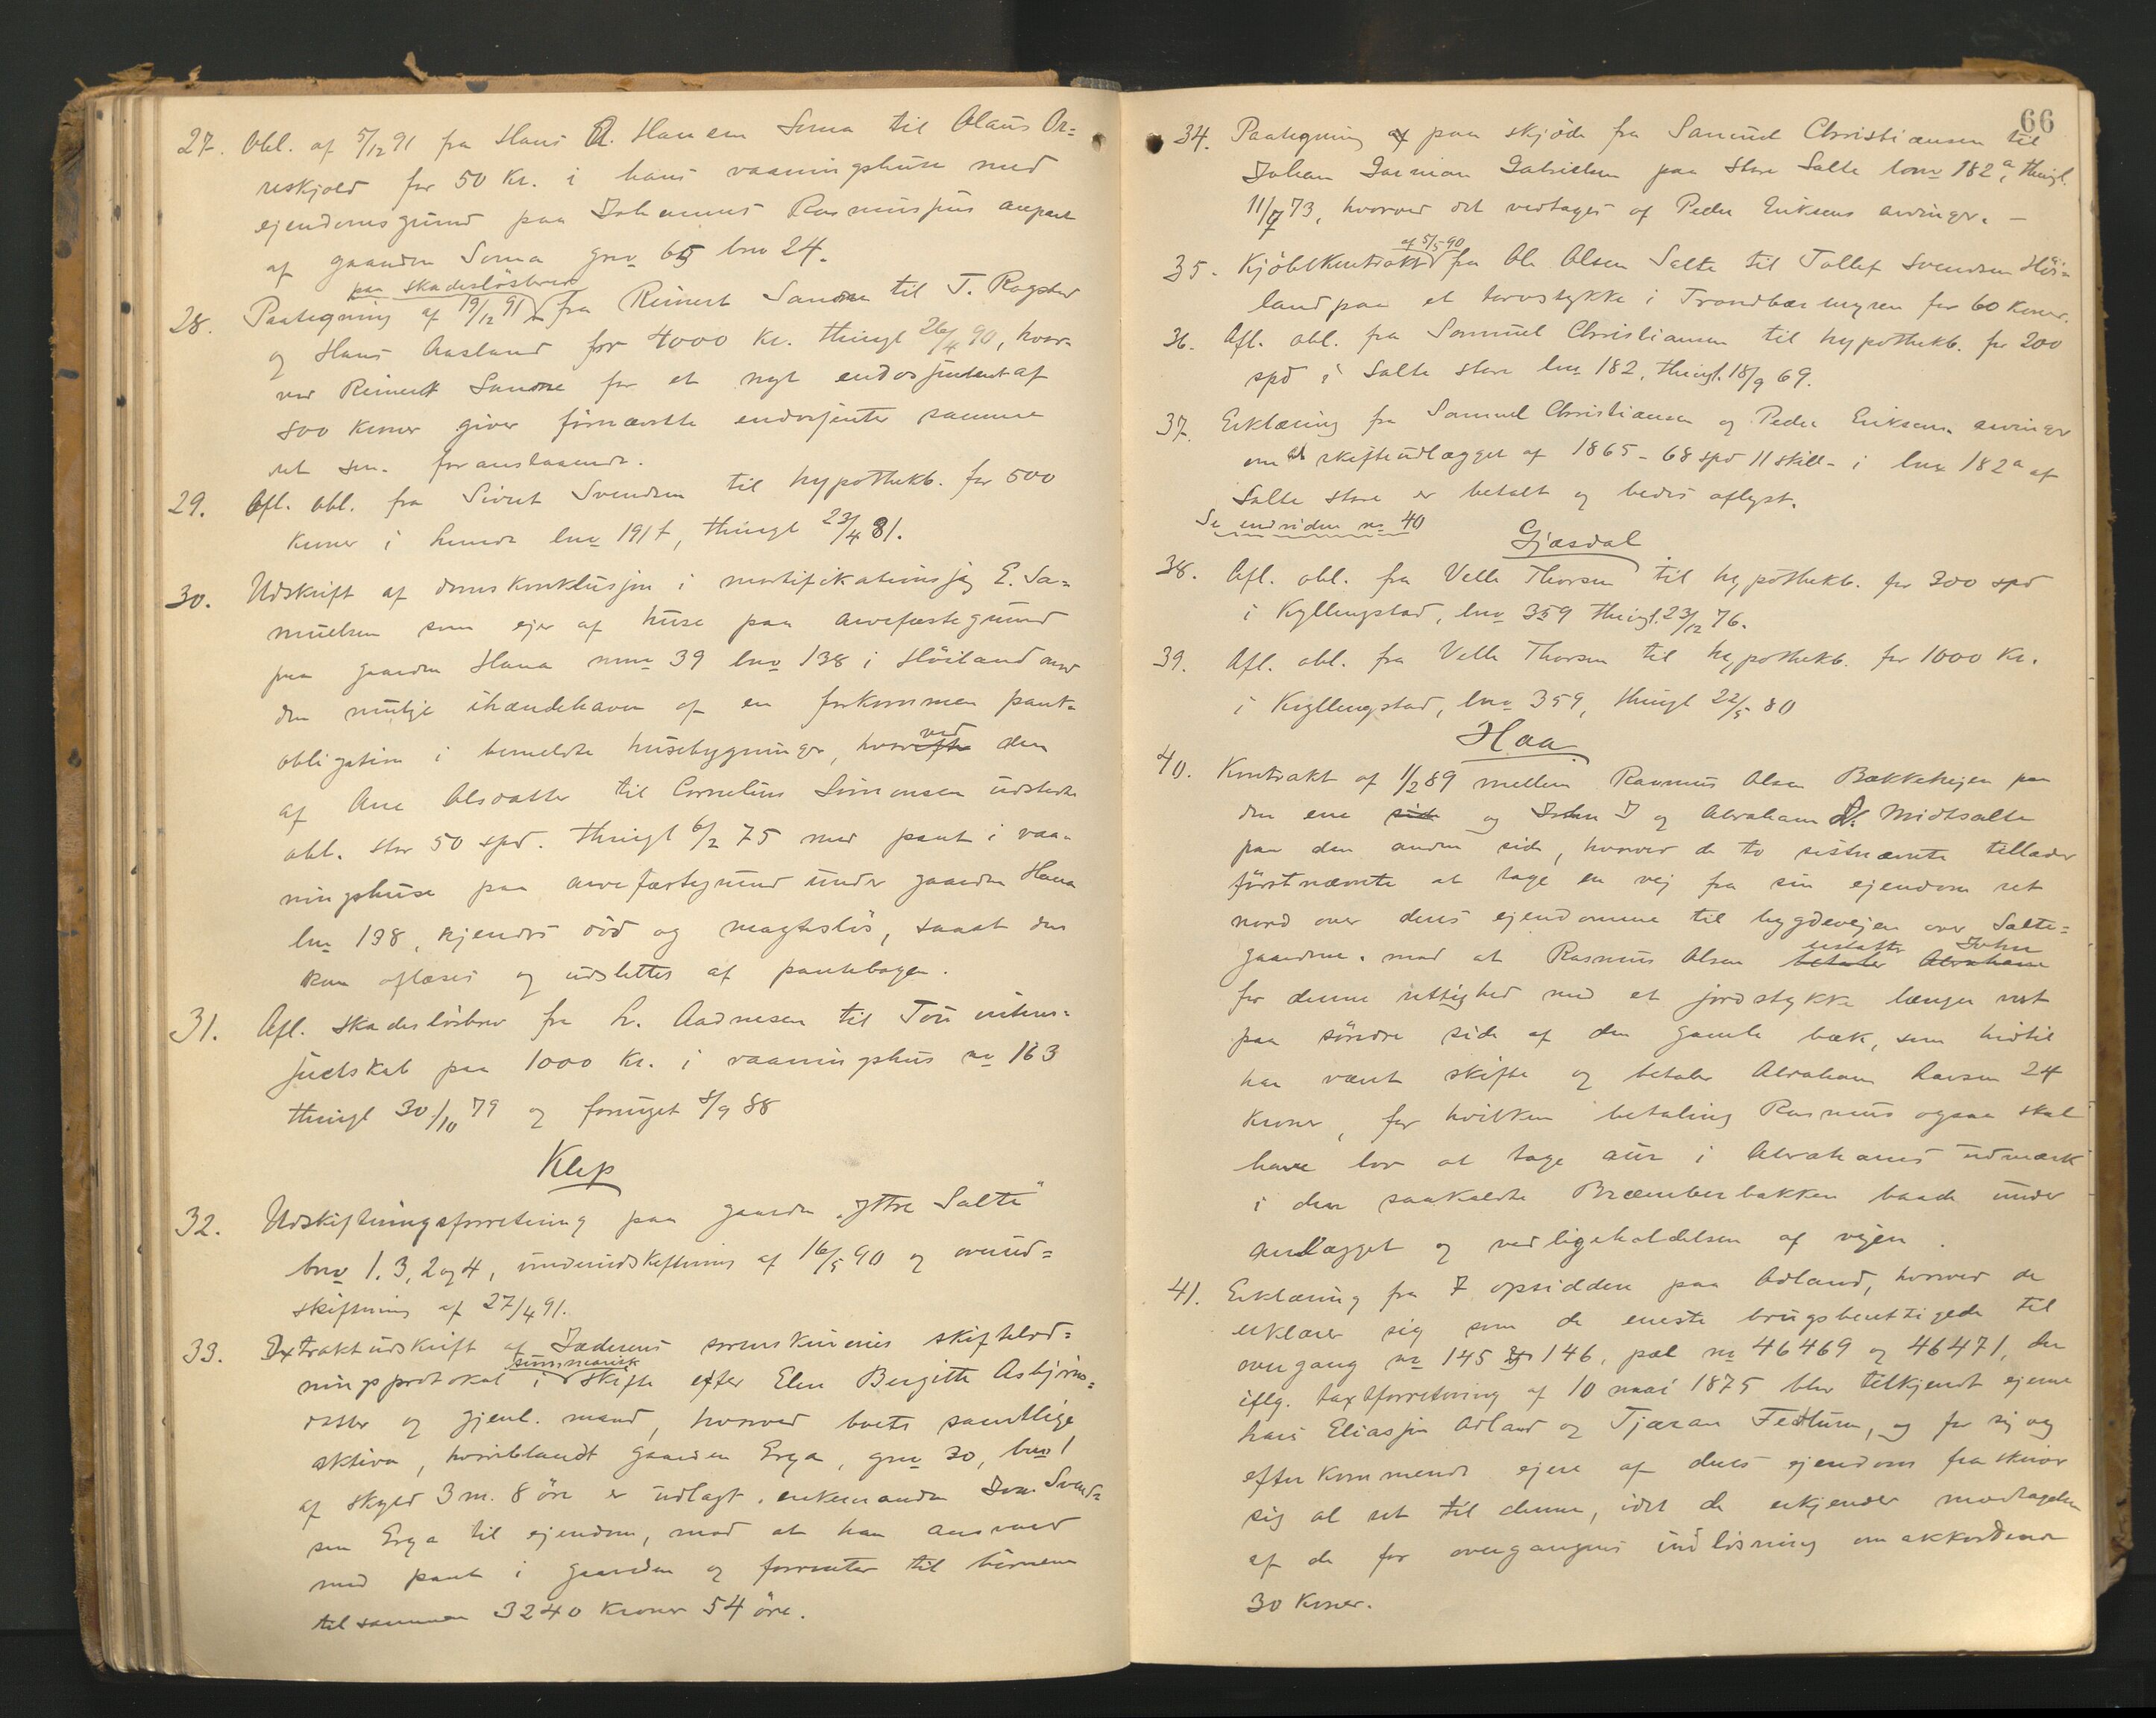 27. Obl. af 5/12 91 fra Hans A. Hansen Soma til Olaus Or=
reskjold for 50 Kr. i hans vaaningshuse med
ejendomsgrund paa Johannes Rasmussens anpart
af gaarden Soma gno 65 bno 24.
paa skadesløsbrev
28. Paategning af 19/12 91 fra Reinert Sandne til T. Rogstad
og Hans Aasland for 4000 Kr. thingl 26/4 90, hvor=
ved Reinert Sandne for et nyt endossement af
800 Kroner giver fornævnte endossenter samme
ret som foranstaaende.
29. Afl. obl. fra Sivert Svendsen til hypothekb. for 500
Kroner i Lunde lno 191 f, thingl 23/4 81.
30. Udskrift af domskonklusjon i mortifikationssag E. Sa=
muelsen som ejer af huse paa arvefæstegrund
paa gaarden Hana mno 39 lno 138 i Høiland mod
den mulige ihændehaver af en forkommen pant=
obligation i bemeldte husebygninger, hvorefter ved den
af Ane Olsdatter til Cornelius Simonsen udstedte
obl. stor 50 spd. thingl 6/2 75 med pant i vaa=
ningshuse paa arvefæstegrund under gaarden Hana
lno 138, kjendes død og magtesløs, saaat den
kan aflæses og udslettes af pantebogen.
31. Afl. skadesløsbrev fra L. Aadnesen til Tou interes=
sentskab paa 1000 Kr. i vaaningshus no 163
thingl 30/10 79 og fornyet 8/9 88
Klep
32. Udskiftningsforretning paa gaarden "Ytre Salte"
bno 1, 3, 2 og 4, underudskiftning af 16/5 90 og overud=
skiftning af 27/4 91.
33. Extraktudskrift af Jæderens sorenskriveris skifteled=
summarisk
ningsprotokol i skifte efter Elen Bergitte Asbjørns=
datter og gjenl. mand, hvorved boets samtlige
aktiva, hvoriblandt gaarden Erga, gno 30, bno 1
af skyld 3 m. 8 øre er udlagt enkemanden Svend=
sen Erga til ejendom, mod at han ansvarer
med pant i gaarden og forrenter til børnene
tilsammen 3240 Kroner 54 øre.
66
34. Paategning af paa skjøde fra Samuel Christiansen til
Johan Gabrielsen paa Store Salte lono 182 a, thingl.
11/7 73, hvorved det vedtages af Peder Eriksens arvinger. —
af 5/5 90
35. Kjøbekontrakt fra Ole Olsen Salte til Tollef Svendsen Høi=
land paa et torvstykke i Trondbærmyren for 60 Kroner.
36. Afl. obl. fra Samuel Christiansen til hypothekb. for 200
spd i Salte store lno 182, thingl. 18/9 69.
37. Erklæring fra Samuel Christiansen og Peder Eriksens arvinger
om at skifteudlægget af 1865 - 68 spd 11 skill - i lno 182 a af
Salte store er betalt og bedes aflyst.
Se endvidere no 40
Gjæsdal
38. Afl. obl. fra Velle Thorsen til hypothekb. for 300 spd
i Kyllingstad, lno 359 thingl. 23/12 76.
39. Afl. obl. fra Velle Thorsen til hypothekb. for 1000 Kr.
i Kyllingstad, lno 359, thingl 22/5 80
Haa
40. Kontrakt af 1/2 89 mellem Rasmus Olsen Bækkehejen paa
den ene side og John J og Abraham L. Midtsalte
paa den anden side, hvorved de to sistnævnte tillader
førstnævnte at tage en vej fra sin ejendom ret
nord over deres ejendomme til bygdevejen over Salte=
gaardene, mod at Rasmus Olsen betaler erstatter Abraham John
for denne rettighed med et jordstykke længer vest
paa søndre side af den gamle bæk, som hidtil
har været skifte og betaler Abraham Larsen 24
Kroner, for hvilken betaling Rasmus ogsaa skal
have lov at tage aur i Abrahams udmark
i den saakaldte Bræmberbakken baade under
anlægget og vedligeholdelsen af vejen.
41. Erklæring fra 7 opsiddere paa Adland, hvorved de
erklærer sig som de eneste brugsberettigede til
overgang no 145 og 146, pæl no 46469 og 46471, der
iflg. taxtforretning af 10 mai 1875 blev tilkjendt ejerne
hans Eliassen Adland og Tjæran Fedtun, og for sig og
efterkommende ejere af deres ejendom fraskriver
sig al ret til denne, idet de erkjender modtagelsen
af de for overgangens indløsning om akkorderede
30 Kroner.